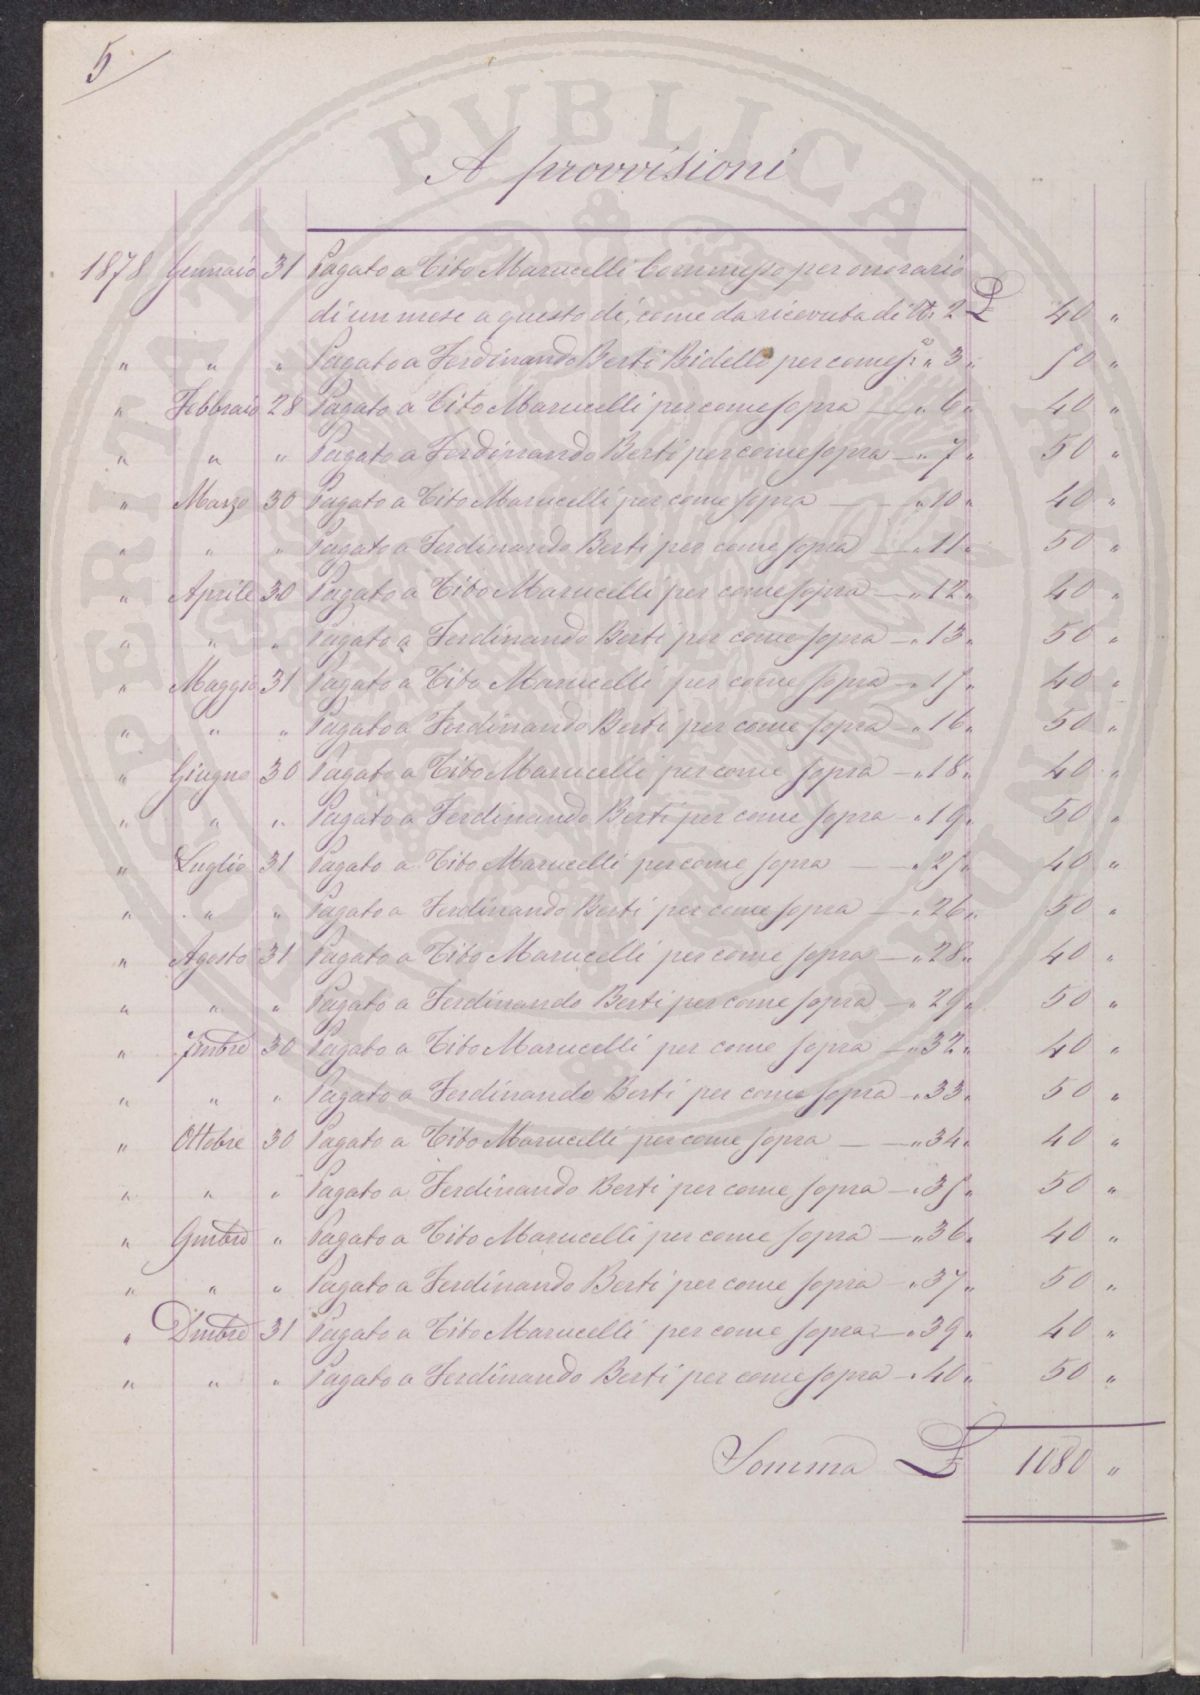 5
A provvisioni
1878 Gennaio 31 Pagato a Tito Marucelli Commesso per onorario
di un mese a questo dì, come da ricevuta di N. 2 £ 40 "
" " " Pagato a Ferdinando Berti Bidello per come sa. " 3 " 50 "
" Febbraio 28 Pagato a Tito Marucelli per come sopra — " 6 " 40 "
" " " Pagato a Ferdinando Berti per come sopra — " 7 " 50 "
" Marzo 30 Pagato a Tito Marucelli per come sopra — — " 10 " 40 "
" " " Pagato a Ferdinando Berti per come sopra — " 11 " 50 "
" Aprile 30 Pagato a Tito Marucelli per come sopra — " 12 " 40 "
" " " Pagato a Ferdinando Berti per come sopra — " 13 " 50 "
" Maggio 31 Pagato a Tito Marucelli per come sopra — " 15 " 40 "
" " " Pagato a Ferdinando Berti per come sopra — " 16 " 50 "
" Giugno 30 Pagato a Tito Marucelli per come sopra — " 18 " 40 "
" " " Pagato a Ferdinando Berti per come sopra — " 19 " 50 "
" Luglio 31 Pagato a Tito Marucelli per come sopra — " 25 " 40 "
" " " Pagato a Ferdinando Berti per come sopra — " 26 " 50 "
" Agosto 31 Pagato a Tito Marucelli per come sopra — " 28 " 40 "
" " " Pagato a Ferdinando Berti per come sopra — " 29 " 50 "
" 7mbre 30 Pagato a Tito Marucelli per come sopra — " 32 " 40 "
" " " Pagato a Ferdinando Berti per come sopra — " 33 " 50 "
" Ottobre 30 Pagato a Tito Marucelli per come sopra — — " 34 " 40 "
" " " Pagato a Ferdinando Berti per come sopra — " 35 " 50 "
" 9mbre " Pagato a Tito Marucelli per come sopra — " 36 " 40 "
" " " Pagato a Ferdinando Berti per come sopra — " 37 " 50 "
" Dmbre 31 Pagato a Tito Marucelli per come sopra — " 39 " 40 "
" " " Pagato a Ferdinando Berti per come sopra — " 40 " 50 "
Somma £ 1080 "